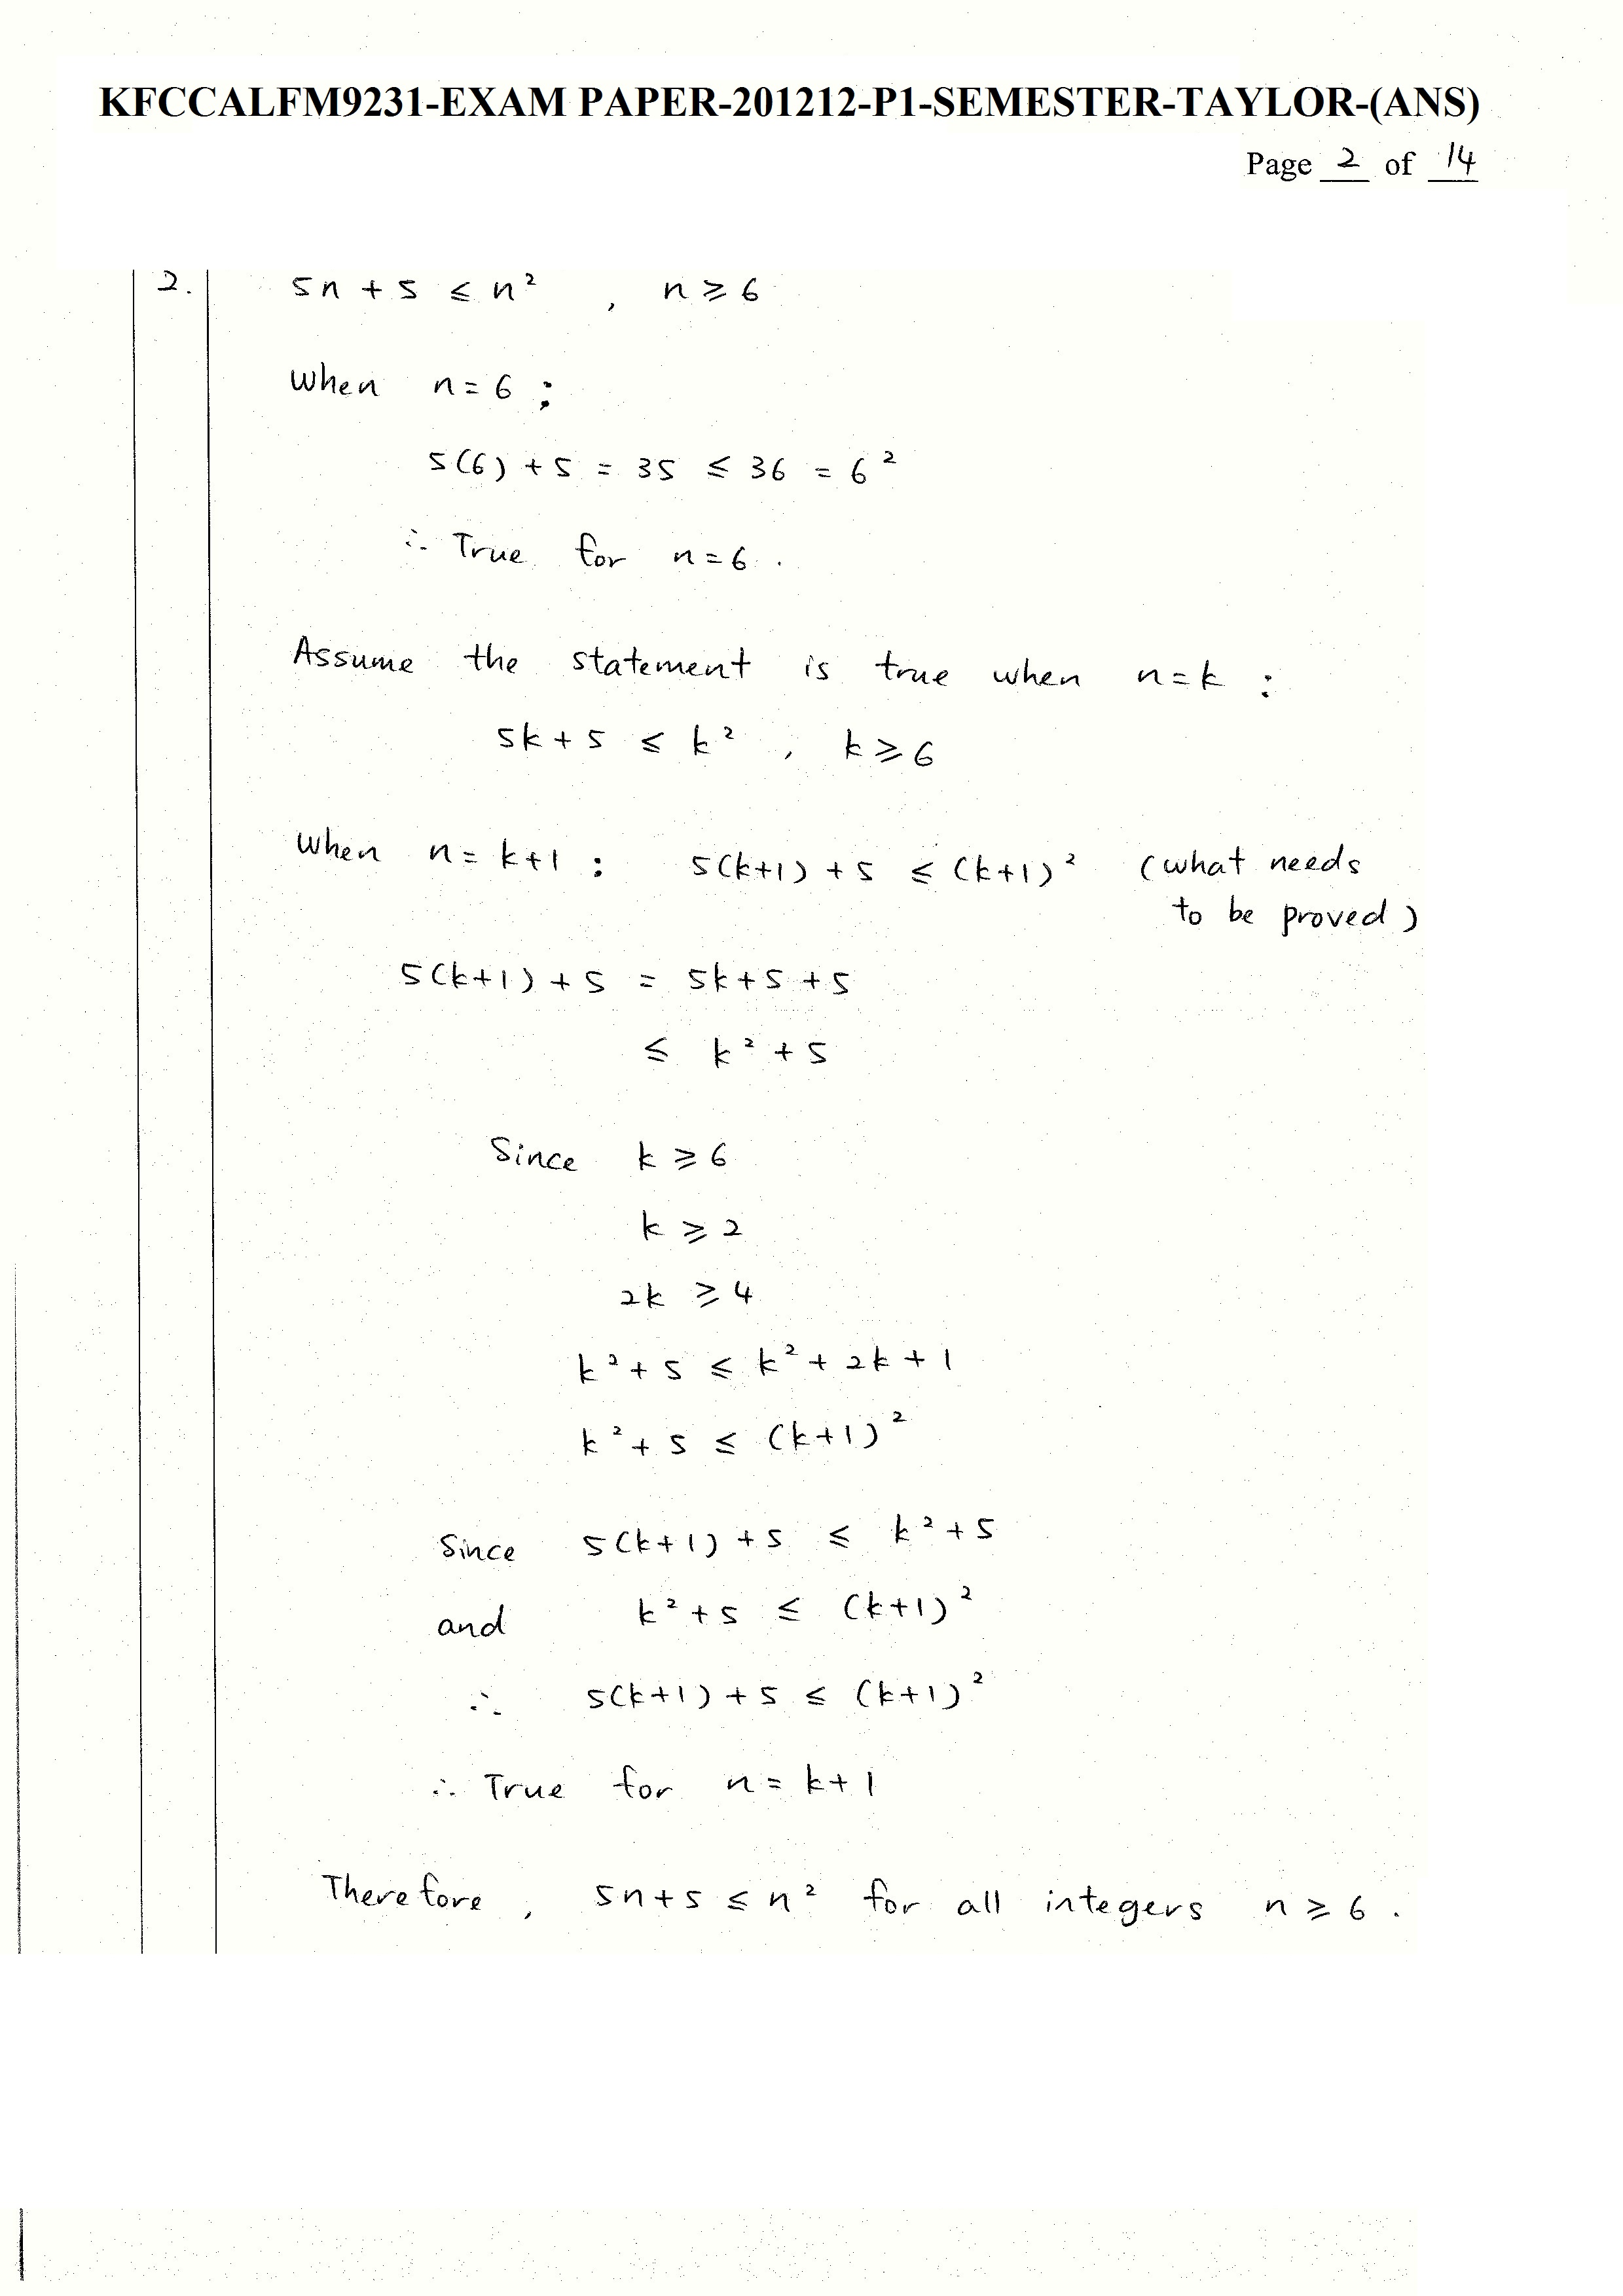 KFCCALFM9231-EXAM PAPER-201212-P1-SEMESTER-TAYLOR-(ANS)
Page 2 of 14
2. 5n + 5 ≤ n² , n ≥ 6
When n = 6 :
5(6) + 5 = 35 ≤ 36 = 6²
∴ True for n = 6 .
Assume the statement is true when n = k :
5k + 5 ≤ k² , k ≥ 6
When n = k+1 : 5(k+1) + 5 ≤ (k+1)² (what needs
to be proved)
5(k+1) + 5 = 5k + 5 + 5
≤ k² + 5
Since k ≥ 6
k ≥ 2
2k ≥ 4
k² + 5 ≤ k² + 2k + 1
k² + 5 ≤ (k+1)²
Since 5(k+1) + 5 ≤ k² + 5
and k² + 5 ≤ (k+1)²
∴ 5(k+1) + 5 ≤ (k+1)²
∴ True for n = k+1
Therefore , 5n + 5 ≤ n² for all integers n ≥ 6 .